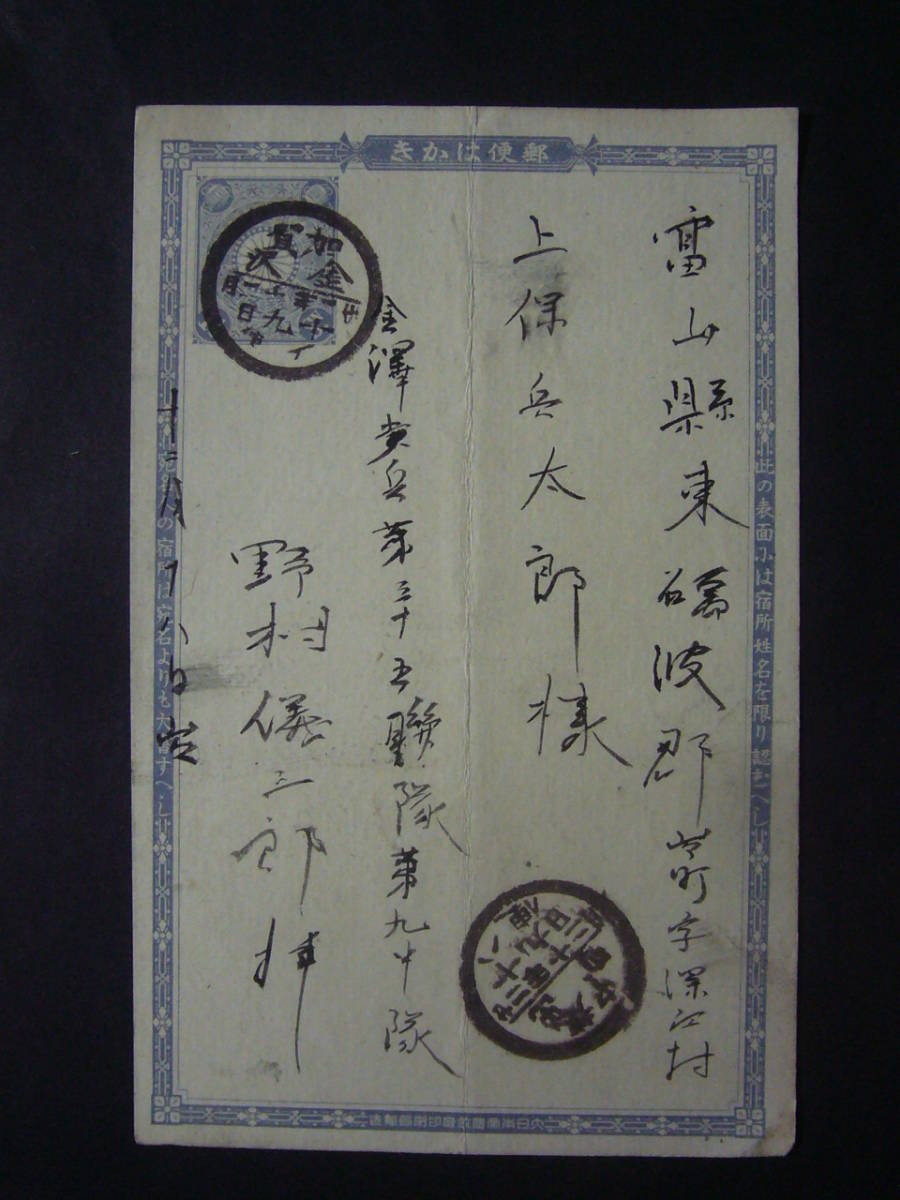 郵便はかき
此の表面には宿所姓名を限り認むへし
富山縣東礪波郡出町字深江村
上保兵太郎様
金澤歩兵第三十五聯隊第九中隊
野村儀三郎拝
十二月十八日出
宛名人の宿所は宛名よりも大書すへし
加賀
金沢
大日本帝國政府印刷局製造